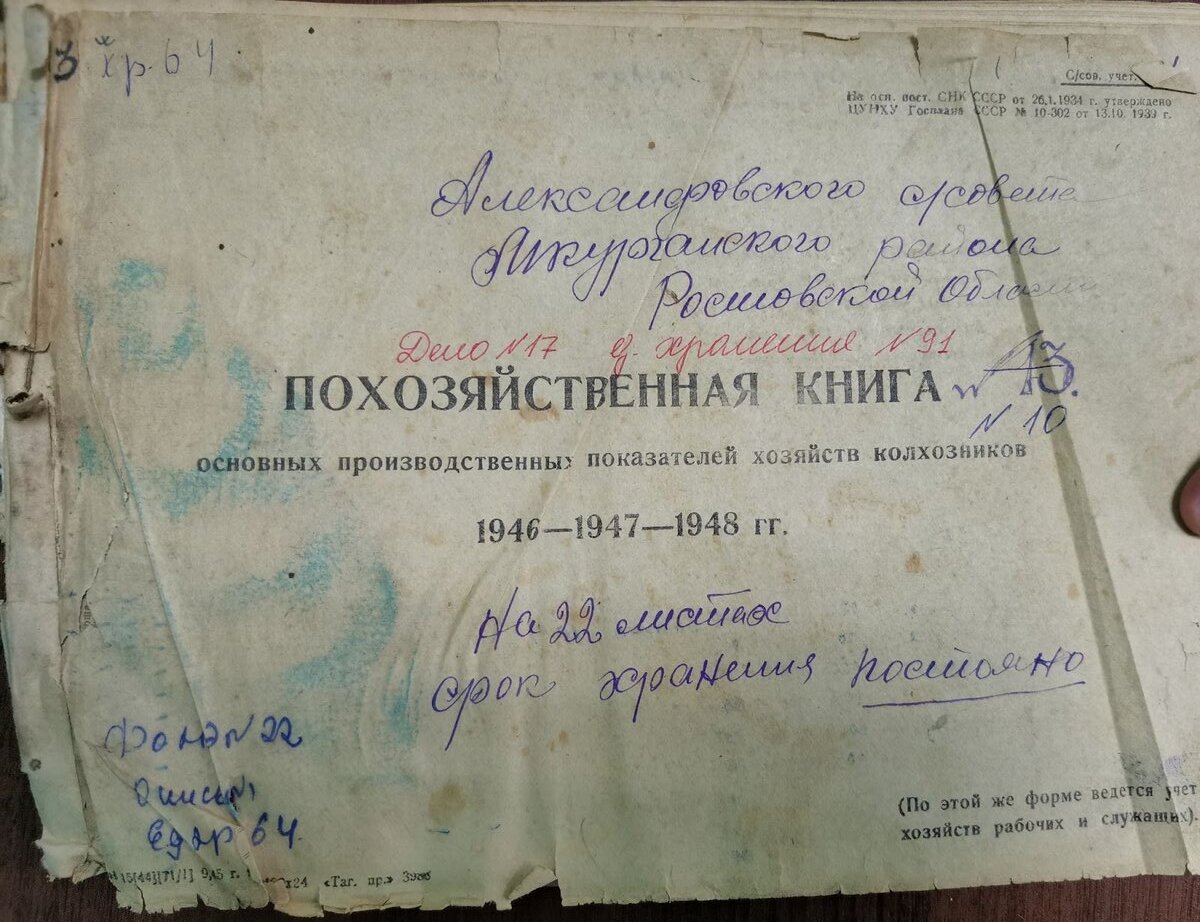 хр. 64
С/сов. учет.
На осн. пост. СНК СССР от 26.1.1934 г. утверждено
ЦУНХУ Госплана СССР № 10-302 от 13.10. 1939 г.
Александровского с/совета
Ростовской Области
района
Дело №17 ед. хранения №91
ПОХОЗЯЙСТВЕННАЯ КНИГА № 13.
№ 10
основных производственных показателей хозяйств колхозников
1946—1947—1948 гг.
На 22 листах
срок хранения постояно
Фонд № 22
Опись №1
Ед хр 64.
(По этой же форме ведется учет
хозяйств рабочих и служащих).
«Таг. пр.»